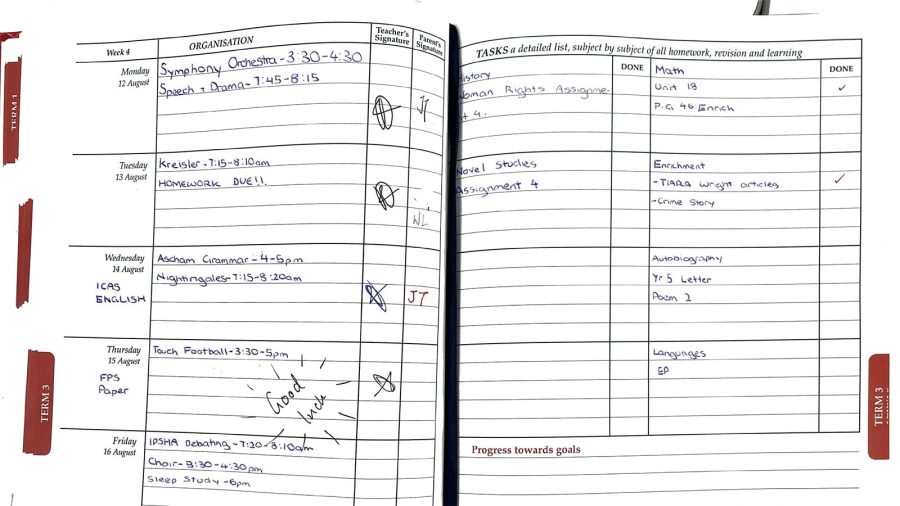 Week 4
ORGANISATION
Teacher's Signature
Parent's Signature
Monday
12 August
Symphony Orchestra - 3:30-4:30
Speech + Drama - 7:45-8:15
JT
TERM 1
Tuesday
13 August
Kreisler - 7:15-8:10am
HOMEWORK DUE!!
WL
Wednesday
14 August
Ascham Grammar - 4-5pm
Nightingales - 7:15-8:20am
ICAS
ENGLISH
JT
Thursday
15 August
Touch Football - 3:30-5pm
FPS
Paper
Good
luck
TERM 3
Friday
16 August
IPSHA Debating - 7:20-8:10am
Choir - 3:30-4:30pm
Sleep Study - 6pm
TASKS a detailed list, subject by subject of all homework, revision and learning
DONE
DONE
istory
uman Rights Assignme-
t 4.
Math
Unit 18
P.G 46 Enrich
Novel Studies
Assignment 4
Enrichment
- TIARA Wright articles
- Crime Story
Autobiography
Yr 5 Letter
Poem 2
Languages
EP
Progress towards goals
TERM 3